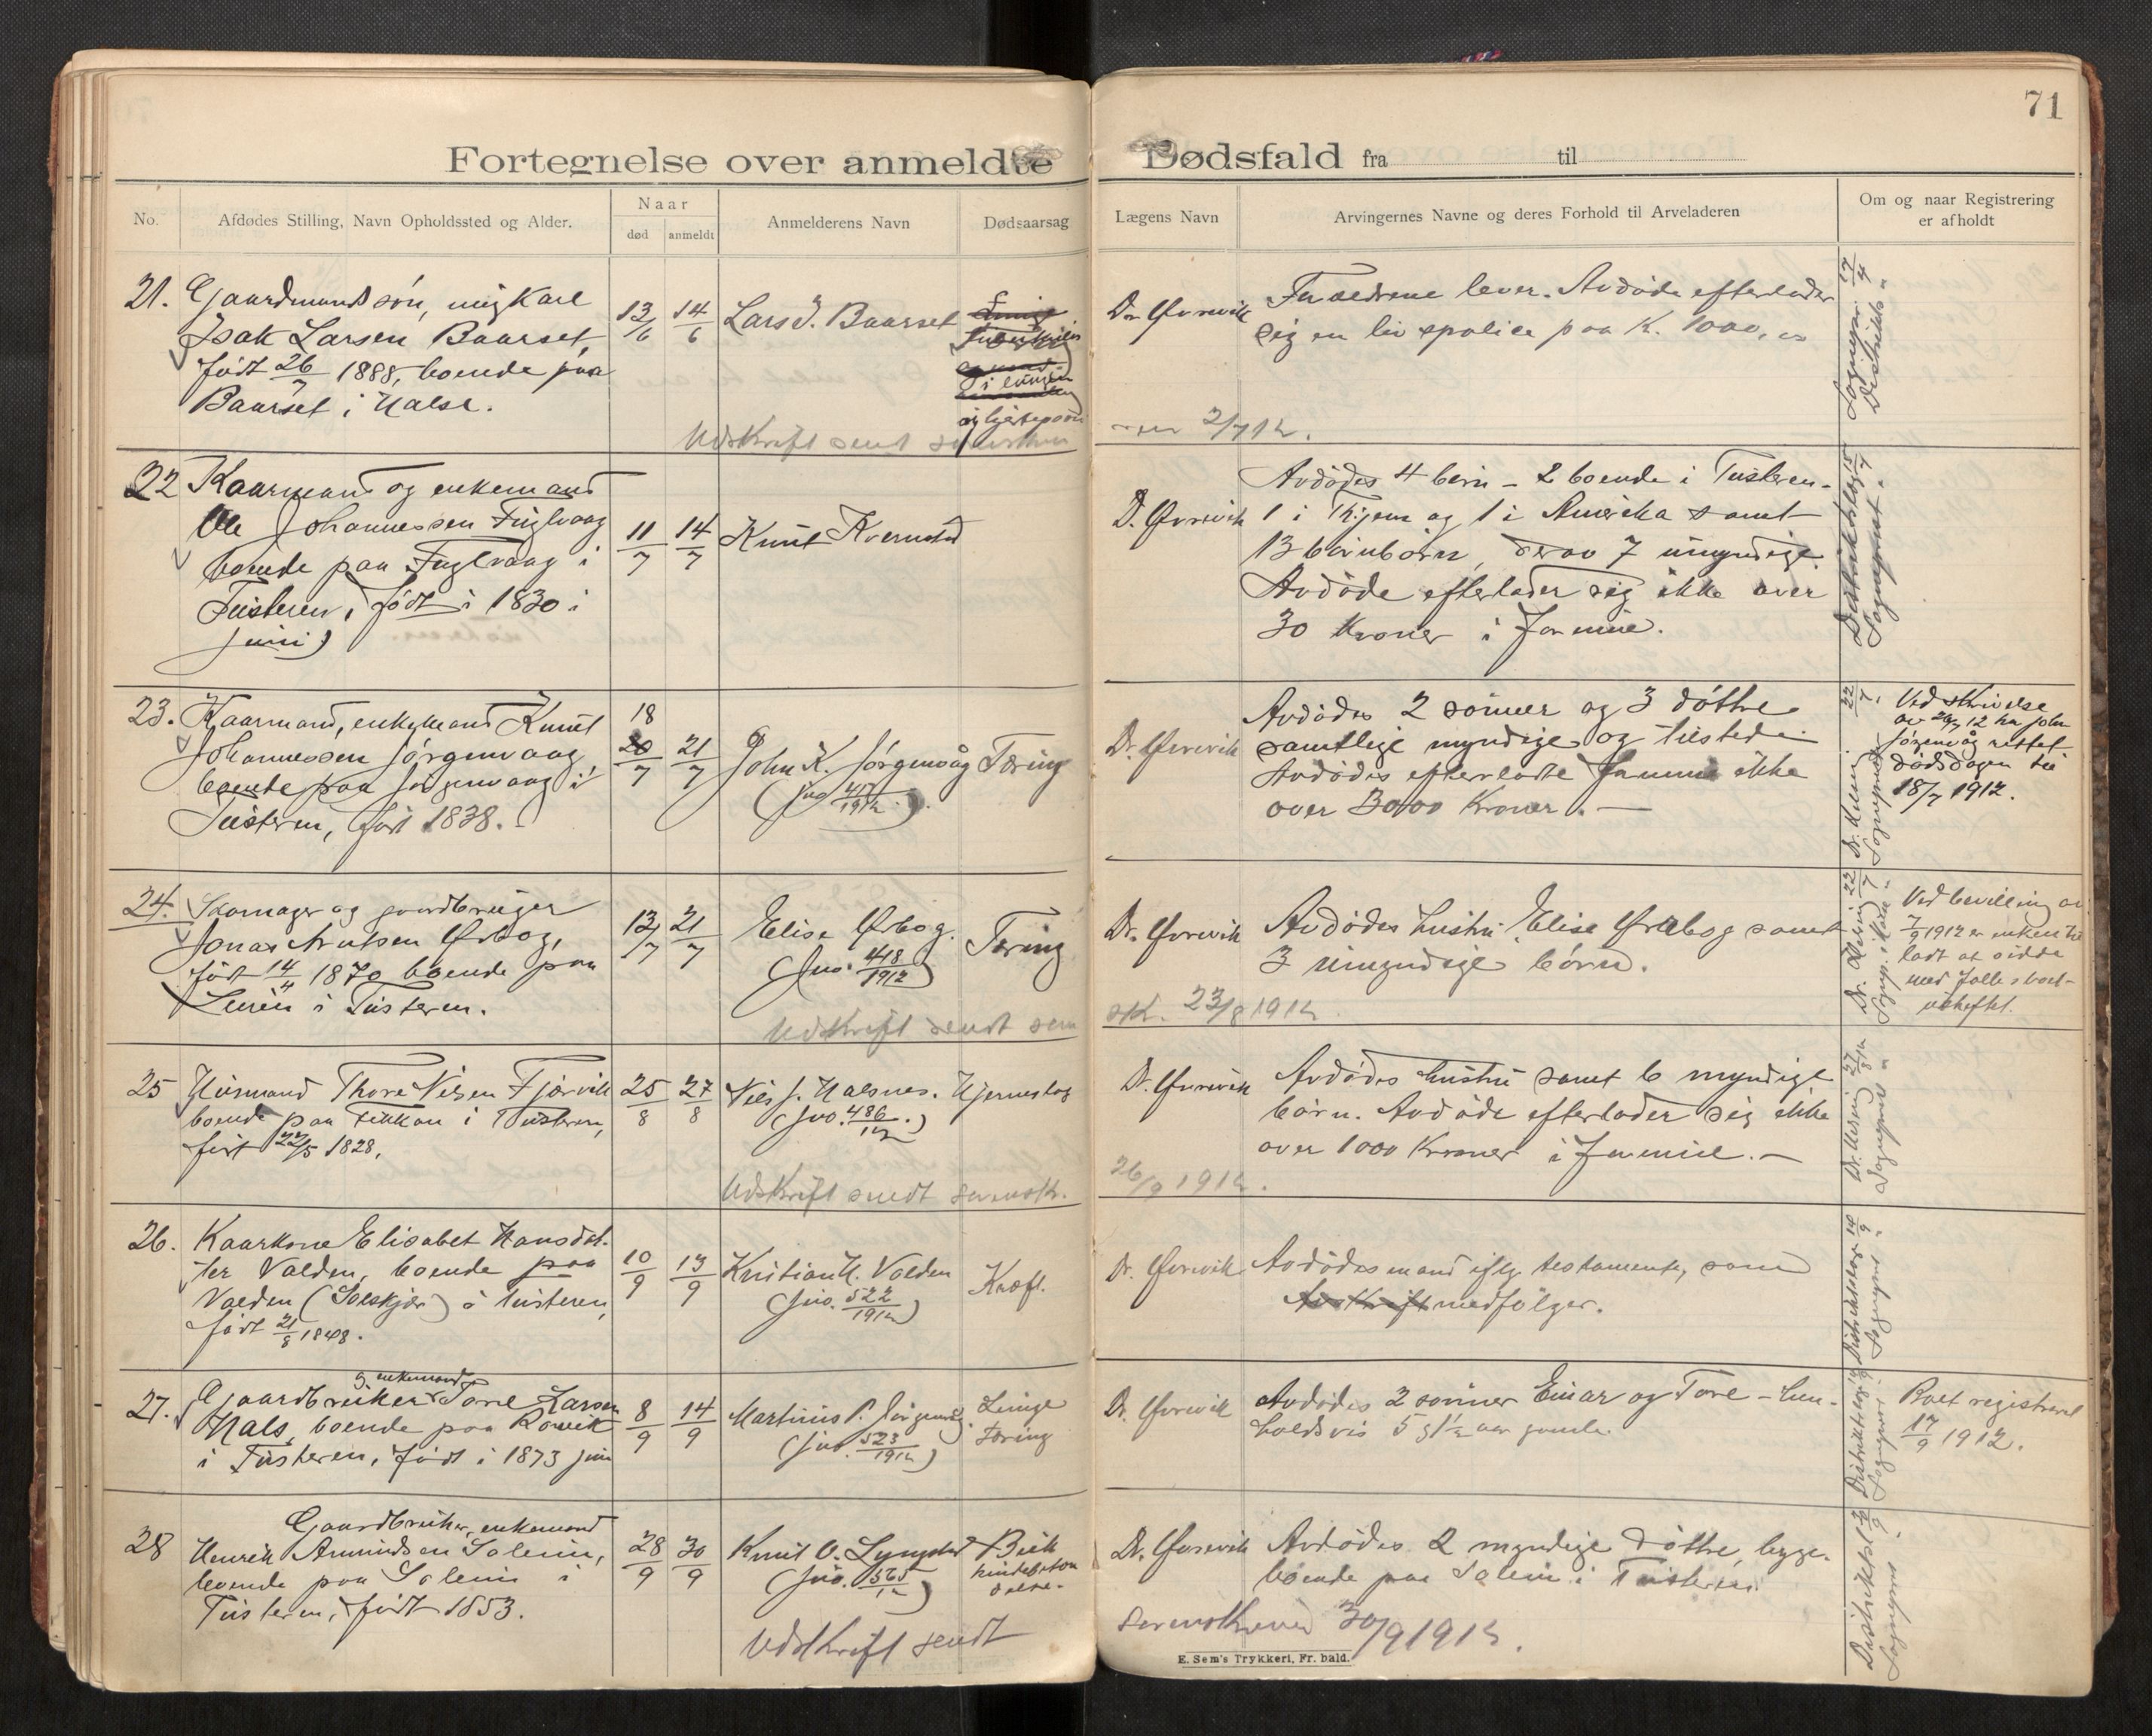 71
Fortegnelse over anmeldte Dødsfald fra til
No.
Afdødes Stilling, Navn Opholdssted og Alder.
Naar
død
anmeldt
Anmelderens Navn
Dødsaarsag
Lægens Navn
Arvingernes Navne og deres Forhold til Arveladeren
Om og naar Registrering
er afholdt
21.
Gaardmandssøn, ungkarl
Isak Larsen Baarset,
født 26/7 1888, boende paa
Baarset i Halse.
13/6
14/6
Lars I. Baarset
Udskrift sendt
Dr. Øvervik
Forældrene lever. Avdøde efterlader
sig en livspolice paa K. 1000,
2/7 12.
Sogneprest 17/4
Distrikts "
22
Kaarmand og enkemand
Ole Johannessen Fuglvaag
boende paa Fuglvaag i
Tusteren, født i 1830 i
juni)
11/7
14/7
Knut Kvernstad
D. Øvervik
Avdødes 4 børn - 2 boende i Tusteren -
1 i Thjem og 1 i Amerika samt
13 barnebørn, derav 7 umyndige.
Avdøde efterlader sig ikke over
30 Kroner i formue.
Distriktslæge 15/7
Sogneprest "
23.
Kaarmand, enkemand Knut
Johannessen Jørgenvaag
boende paa Jørgenvaag i
Tusteren, født 1838.
18
20/7
21/7
John K. Jørgenvåg
(Jno 417/1912)
Tæring
Dr. Øvervik
Avdødes 2 sønner og 3 døttre
samtlige myndige og tilstede.
Avdødes efterladte formue ikke
over 3000 Kroner. —
22/7
Sogneprest
Ved skrivelse
av 26/7 12 har John
Jørgenvåg rettet
dødsdagen til
18/7 1912.
24.
Skomager og gaardbruger
Jonas Knutsen Ørbog,
født 14/4 1870 boende paa
Leuren i Tusteren.
13/7
21/7
Elise Ørbog.
(Jno. 418/1912)
Tæring
Udskrift sendt sorenskr.
Dr. Øvervik
Avdødes hustru Elise Ørbog samt
3 umyndige børn.
23/8 1912
22/7
Ved bevilling av
7/9 1912 er enken til-
ladt at sidde
med fælles bo i
uskiftet.
25
Husmand Thore Nilsen Fjærvik
boende paa Fikkan i Tusteren,
født 22/5 1828,
25/8
27/8
Nils J. Halsnes.
(Jno. 486/12.)
Hjerneslag
Udskrift sendt sorenskr.
Dr. Øvervik
Avdødes hustru samt 6 myndige
børn. Avdøde efterlader sig ikke
over 1000 Kroner i formue. —
26/9 1912.
27/8 12
Sogneprest "
26.
Kaarkone Elisabet Hansdat-
ter Valden, boende paa
Valden (Solskjær) i Tusteren,
født 21/8 1848.
10/9
13/9
Kristian H. Volden
(Jno. 522/1912)
Kræft.
Dr. Øvervik
Avdødes mand iflg. testamente, som
Avskrift medfølger.
Distriktslæge 14/9
Sogneprest "
27.
og enkemand
Gaardbruker Tore Larsen
Hals, boende paa Rovik
i Tusteren, født i 1873 juni
8/9
14/9
Martinus P. Jørgenvåg.
(Jno. 523/1912)
Lunge
tæring
Dr. Øvervik
Avdødes 2 sønner Einar og Tore - hen-
holdsvis 5 og 1½ aar gamle.
Distriktslæge
Sogneprest
Boet registreret
17/9 1912.
28
Gaardbruker, enkemand
Henrik Amundsen Solem,
boende paa Solem i
Tusteren, født 1853.
28/9
30/9
Knut O. Lyngstad
(Jno. 565/12)
Udskrift sendt
Dr. Øvervik
Avdødes 2 myndige døttre, begge
boende paa Solem i Tusteren
sorenskriveren 30/9 1912.
Sogneprest
E. Sem's Trykkeri, Fr. hald.